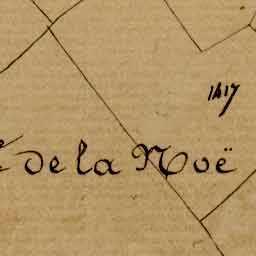 1417
de la Noë